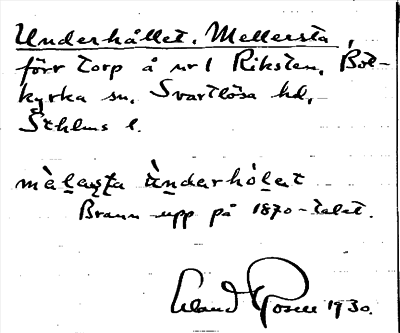 Underhållet, Mellersta,
förr torp å nr 1 Riksten, Bot-
kyrka sn, Svartlösa hd,
Sthlms l.
mèḷaṣṭa ùnderhòḷet
Brann upp på 1870-talet.
Erland Rosell 1930.